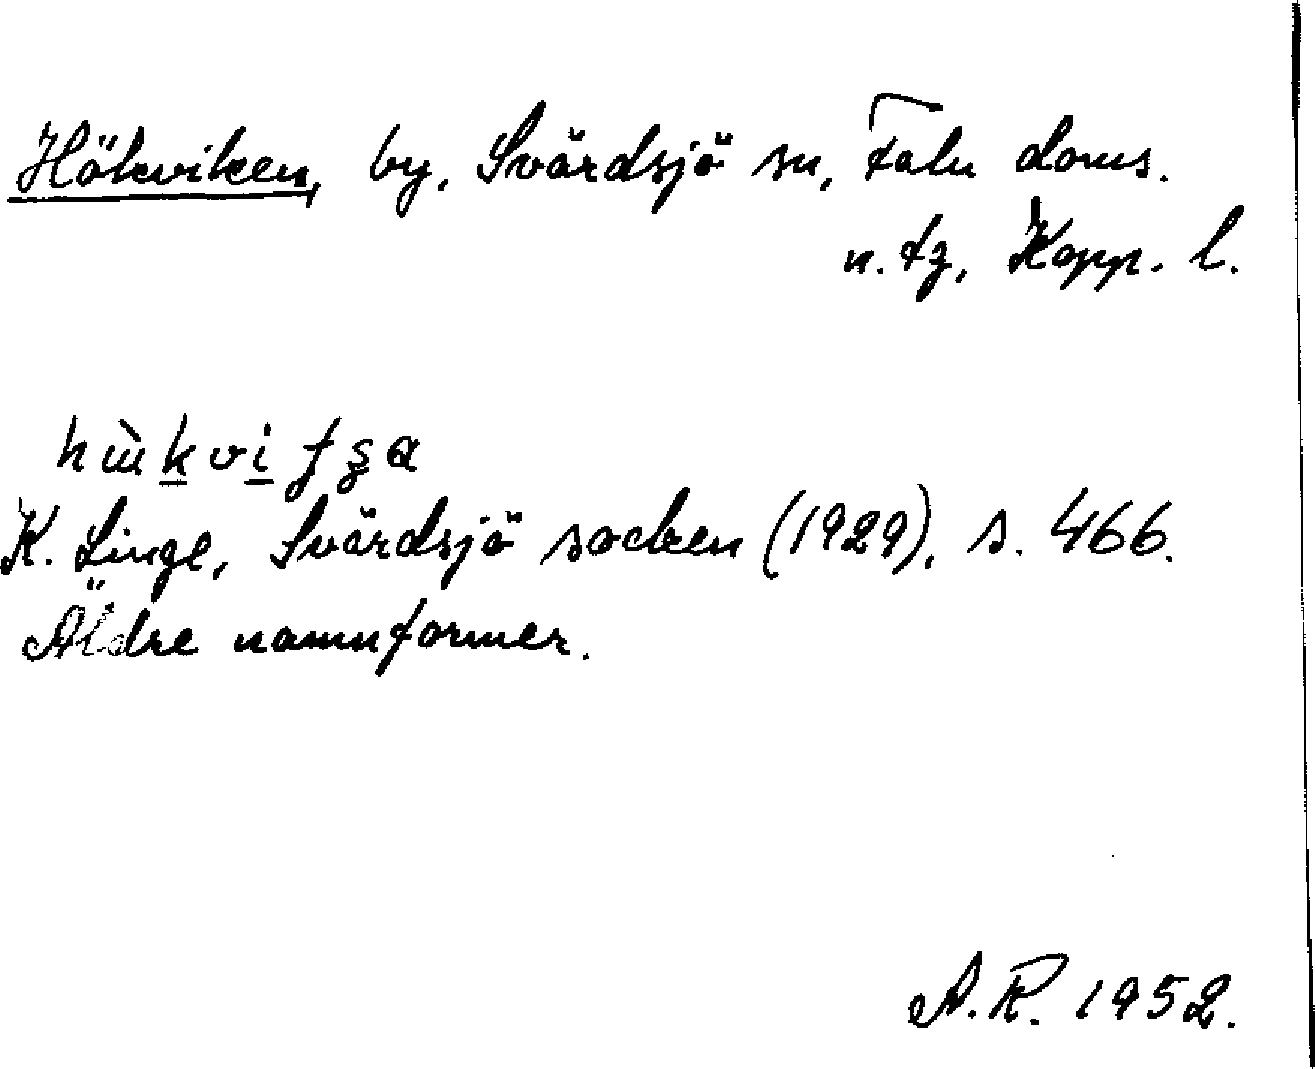 Hökviken, by, Svärdsjö sn, Falu doms.
n. tg, Kopp. l.
K. Linge, Svärdsjö socken (1929), s. 466.
Äldre namnformer.
A.R. 1952.